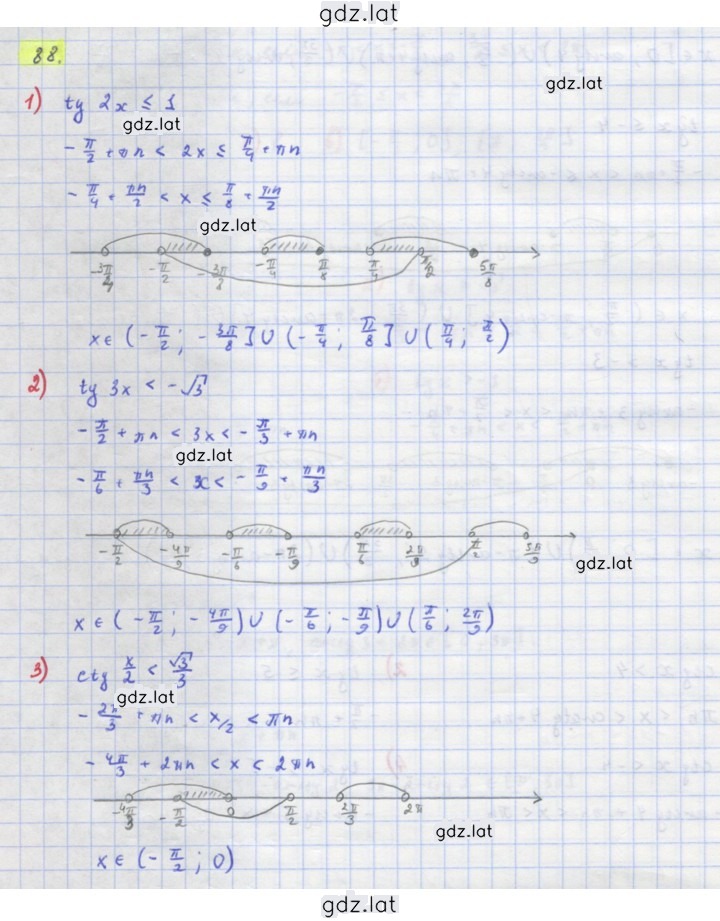 gdz.lat
88.
gdz.lat
1) tg 2x ≤ 1
gdz.lat
-π/2 + πn < 2x ≤ π/4 + πn
-π/4 + πn/2 < x ≤ π/8 + πn/2
gdz.lat
-3π/4 -π/2 -3π/8 -π/4 π/8 π/4 π/2 5π/8
x ∈ (-π/2; -3π/8] ∪ (-π/4; π/8] ∪ (π/4; π/2)
2) tg 3x < -√3
-π/2 + πn < 3x < -π/3 + πn
gdz.lat
-π/6 + πn/3 < x < -π/9 + πn/3
-π/2 -4π/9 -π/6 -π/9 π/6 2π/9 π/2 5π/9
gdz.lat
x ∈ (-π/2; -4π/9) ∪ (-π/6; -π/9) ∪ (π/6; 2π/9)
3) ctg x/2 < √3/3
gdz.lat
-2π/3 + πn < x/2 < πn
-4π/3 + 2πn < x < 2πn
-4π/3 -π/2 0 π/2 2π/3 2π
gdz.lat
x ∈ (-π/2; 0)
gdz.lat